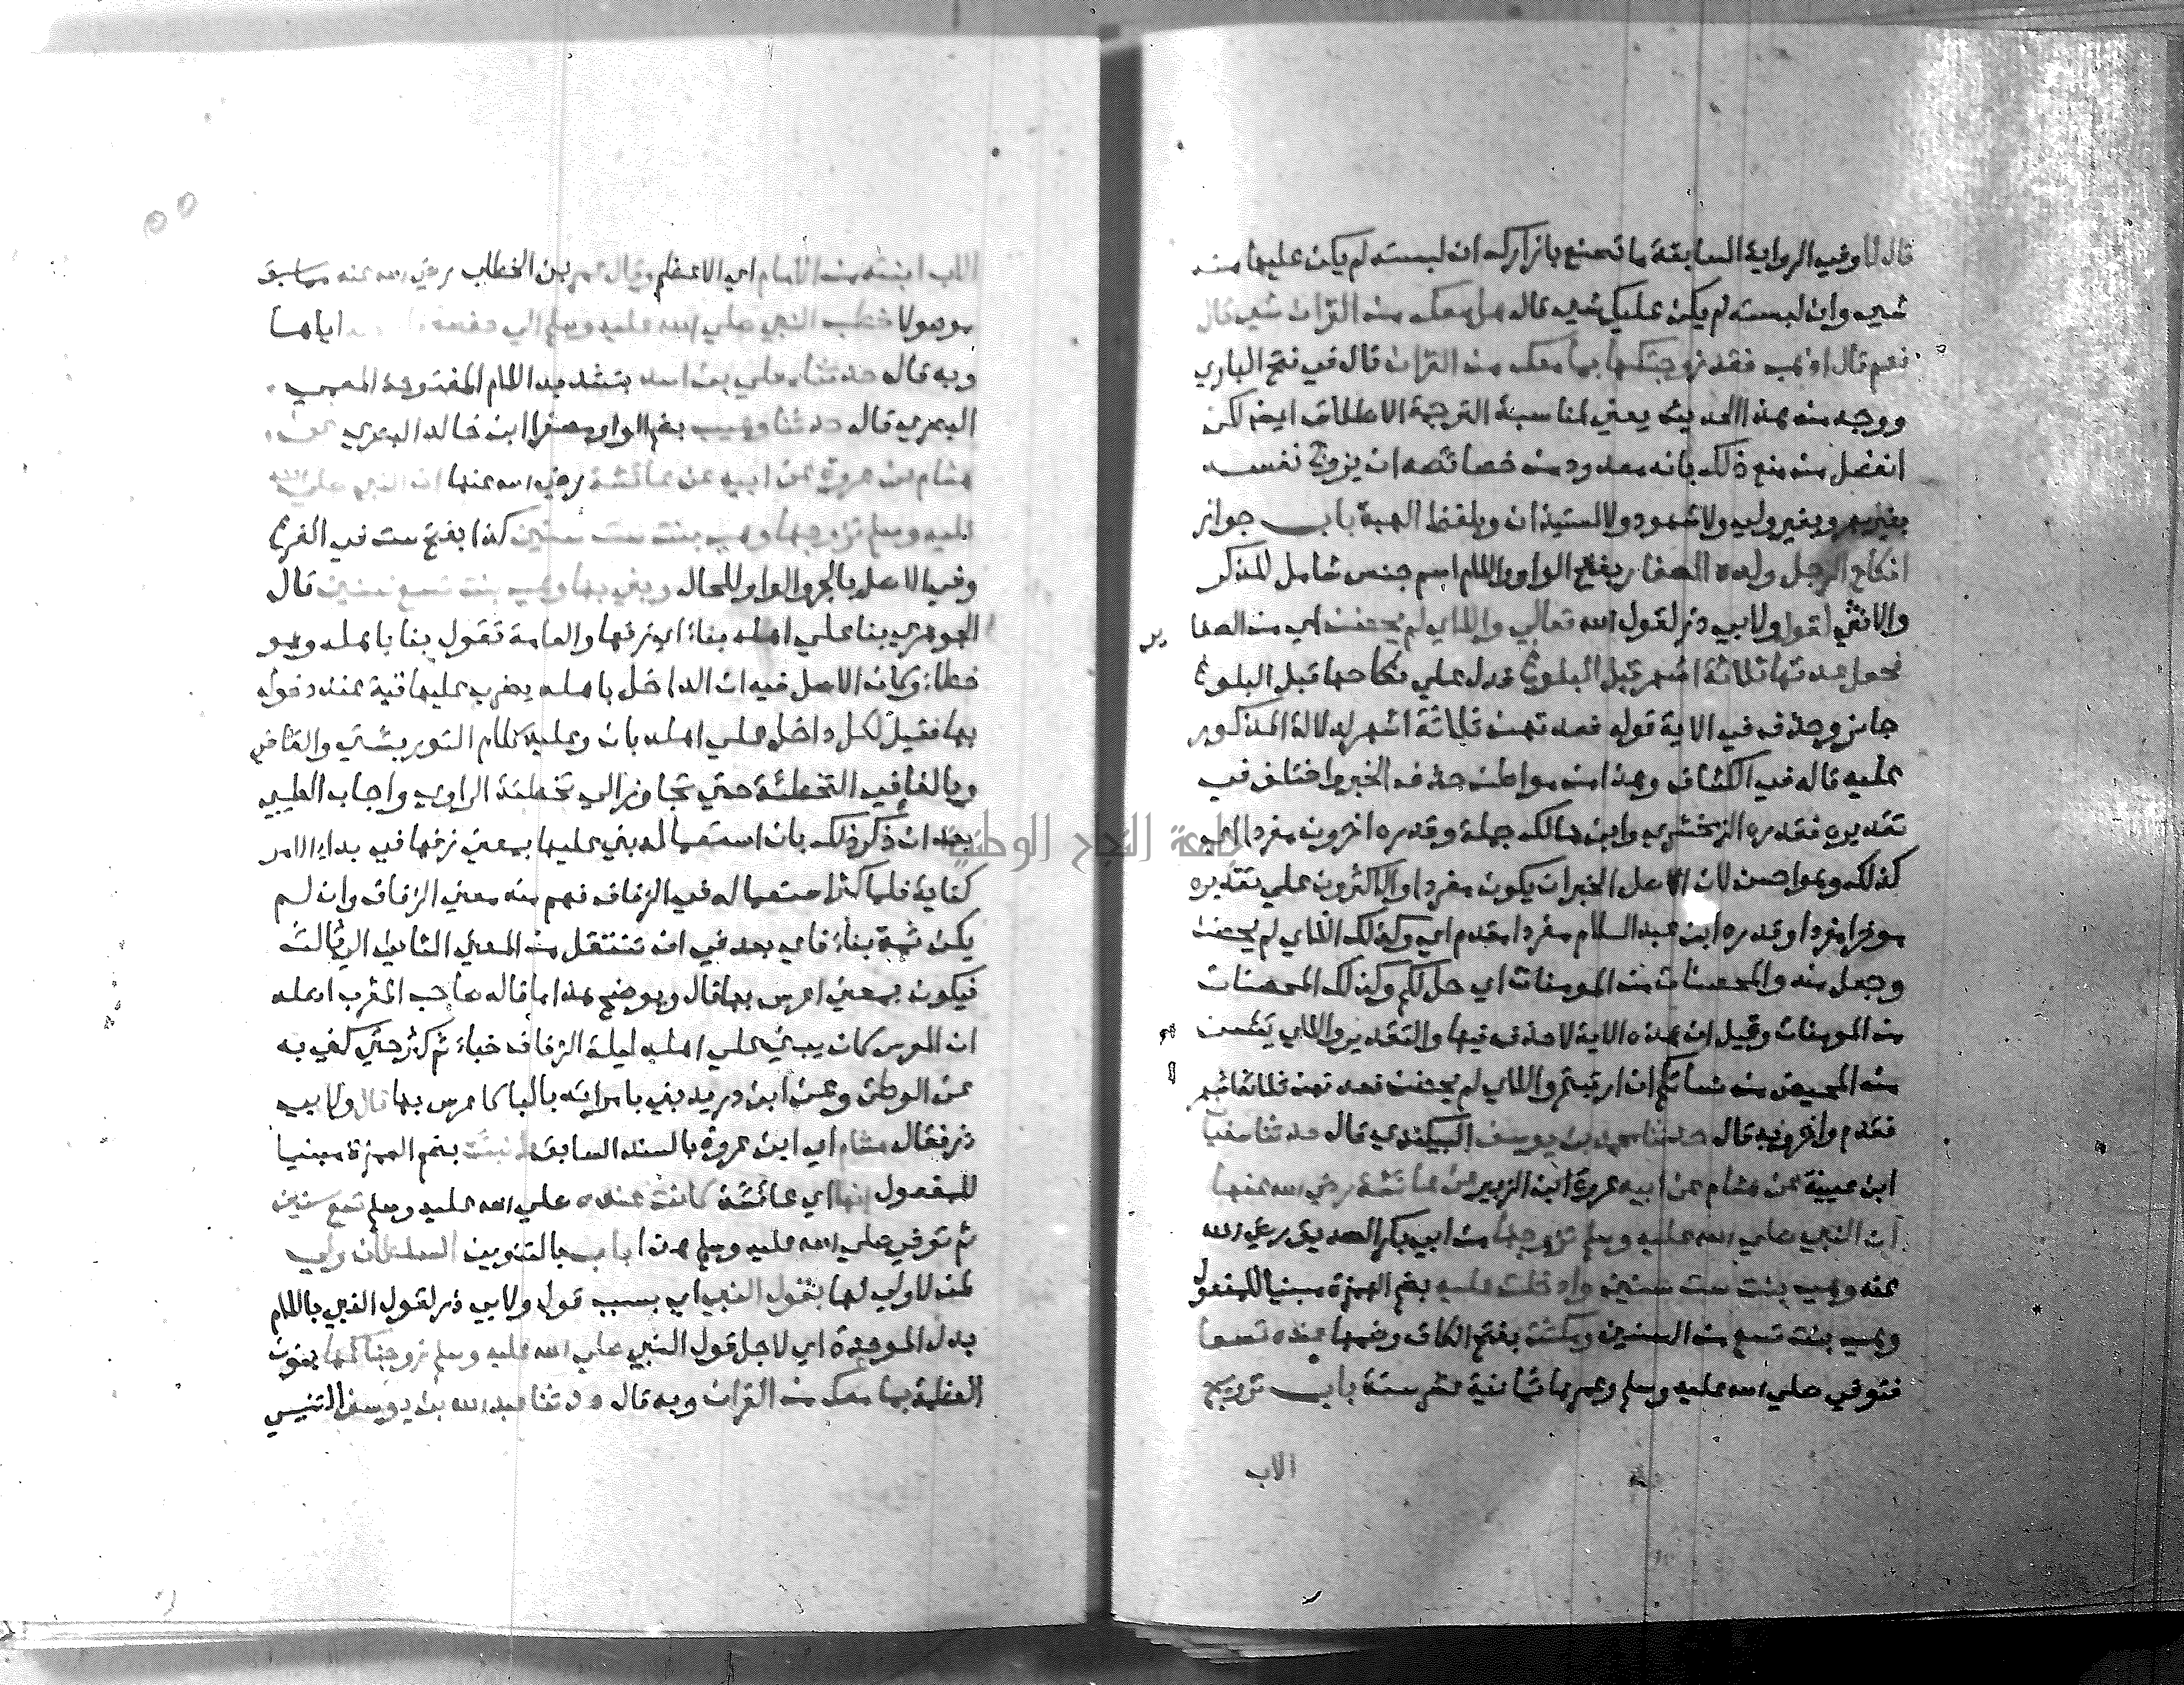 قال لا وفي الرواية السابقة ما تصنع بازارك ان لبسته لم يكن عليها منه
شي وان لبسته لم يكن عليك شي قال هل معك من القران شي قال
نعم قال اذهب فقد زوجتكها بما معك من القران قال في فتح الباري
ووجه منه هذا الحديث يعني لمناسبة الترجمة الاطلاق ايضا لكن
انفصل من منع ذلك بانه معدود من خصائصه ان يزوج نفسه
بغير مهر وبغير ولي ولا شهود ولا استيذان وبلفظ الهبة باب جواز
انكاح الرجل ولده الصغار بفتح الواو واللام اسم جنس شامل للذكر
والانثى لقول ولابي ذر لقول الله تعالي واللاي لم يحضن اي من الصغا
ير
فجعل عدتها ثلاثة اشهر قبل البلوغ فدل علي نكاحها قبل البلوغ
جايز وحذف في الاية قوله فعدتهن ثلاثة اشهر لدلالة المذكور
عليه قاله في الكشاف وهذا من مواطن حذف الخبر واختلف في
تقديره فقدره الزمخشري وابن مالك جملة وقدره اخرون مفردا اي
كذلك وهو احسن لان اصل الخبر ان يكون مفردا والاكثرون علي تقديره
موخرا مفردا وقدره ابن عبد السلام مفردا مقدم اي وكذلك اللاي لم يحضن
وجعل منه والمحصنات من المومنات اي حل لكم وكذلك المحصنات
من المومنات وقيل ان هذه الاية لا حذف فيها والتقدير واللاي يئسن
من المحيض من نسائكم ان ارتبتم واللاي لم يحضن فعدتهن ثلاثة اشهر
فقدم واخر وبه قال حدثنا محمد بن يوسف البيكندي قال حدثنا سفيا
ابن عيينة عن هشام عن ابيه عروة ابن الزبير عن عائشة رضي الله عنها
ان النبي صلي الله عليه وسلم تزوجها من ابي بكر الصديق رضي الله
عنه وهي بنت ست سنين وادخلت عليه بضم الهمزة مبنيا للمفعول
وهي بنت تسع من السنين ومكثت بفتح الكاف وضمها عنده تسعا
فتوفي صلي الله عليه وسلم وعمرها ثمانية عشر سنة باب تزويج
الاب
الاب ابنته من الامام اي الاعظم وقال عمر بن الخطاب رضي الله عنه مما سبق
موصولا خطب النبي صلي الله عليه وسلم الي حفصة اياها
وبه قال حدثنا معلي بن اسد بتشديد اللام المفتوحة العمي
البصري قال حدثنا وهيب بضم الواو مصغرا ابن خالد البصري عن
هشام بن عروة عن ابيه عن عائشة رضي الله عنها ان النبي صلي الله
عليه وسلم تزوجها وهي بنت ست سنين كذا بفتح ست في الفرع
وفي الاصل بالجر والواو للحال وبني بها وهي بنت تسع سنين قال
الجوهري بنا علي اهله بناء اي زفها والعامة تقول بنا باهله وهو
خطاء وكان الاصل فيه ان الداخل باهله يضرب عليها قبة عند دخوله
بها فقيل لكل داخل علي اهله بان وعليه كلام التوربشتي والقاضي
وبالغا في التخطئة حتي تجاوز الي تخطئة الراوي واجاب الطيبي
بعد ان ذكر ذلك بان استعماله بني عليها بمعني زفها في بداء الامر
كناية فلما كثر استعماله في الزفاف فهم منه معني الزفاف وان لم
يكن ثمة بناء فاي بعد في ان تنتقل من المعني الثاني الي الثالث
فيكون بمعني اعرس بها قال ويوضح هذا ما قاله صاحب المغرب اصله
ان المعرس كان يبني علي اهله ليلة الزفاف خباء ثم كثر حتي كني به
عن الوطئ وعن ابن دريد بني بامراته بالبا كاعرس بها قال ولابي
ذر فقال هشام اي ابن عروة بالسند السابق انبئت بضم الهمزة مبنيا
للمفعول انها اي عائشة كانت عنده صلي الله عليه وسلم تسع سنين
ثم توفي صلي الله عليه وسلم هذا باب بالتنوين السلطان ولي
لمن لا ولي لها بقول النبي اي بسبب قول ولابي ذر لقول النبي باللام
بدل الموحدة اي لاجل قول النبي صلي الله عليه وسلم زوجناكها بنون
العظمة بما معك من القران وبه قال حدثنا عبد الله بن يوسف التنيسي
جامعة النجاح الوطنية